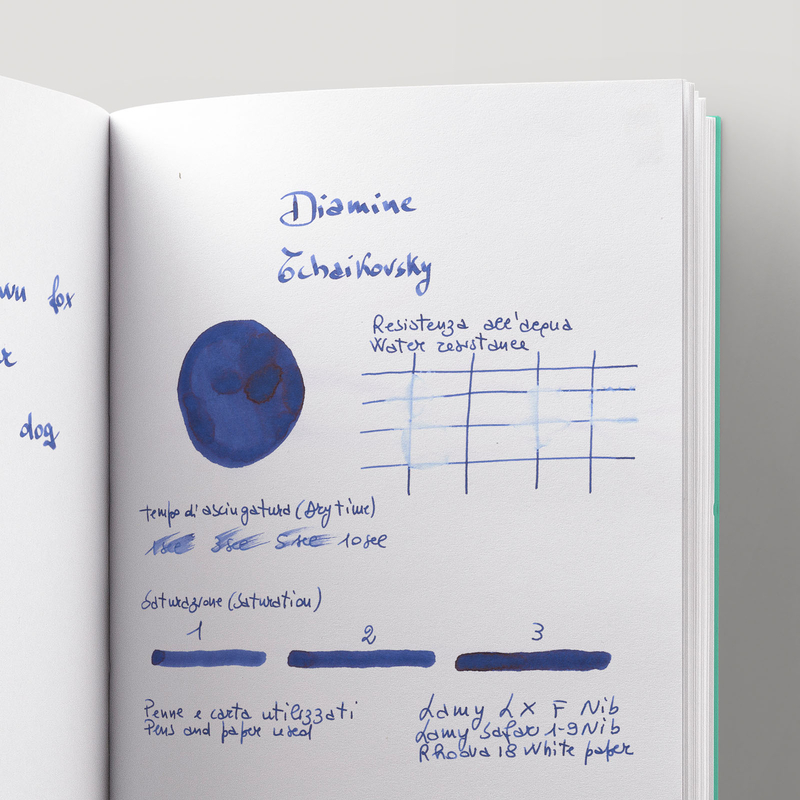 wn fox
dog
Diamine
Tchaikovsky
Resistenza all'acqua
Water resistance
tempo di asciugatura (Dry time)
1sec 3sec 5sec 10sec
Saturazione (Saturation)
1 2 3
Penne e carta utilizzati
Pens and paper used
Lamy Lx F Nib
Lamy Safari 1.9 Nib
Rhodia 18 White paper